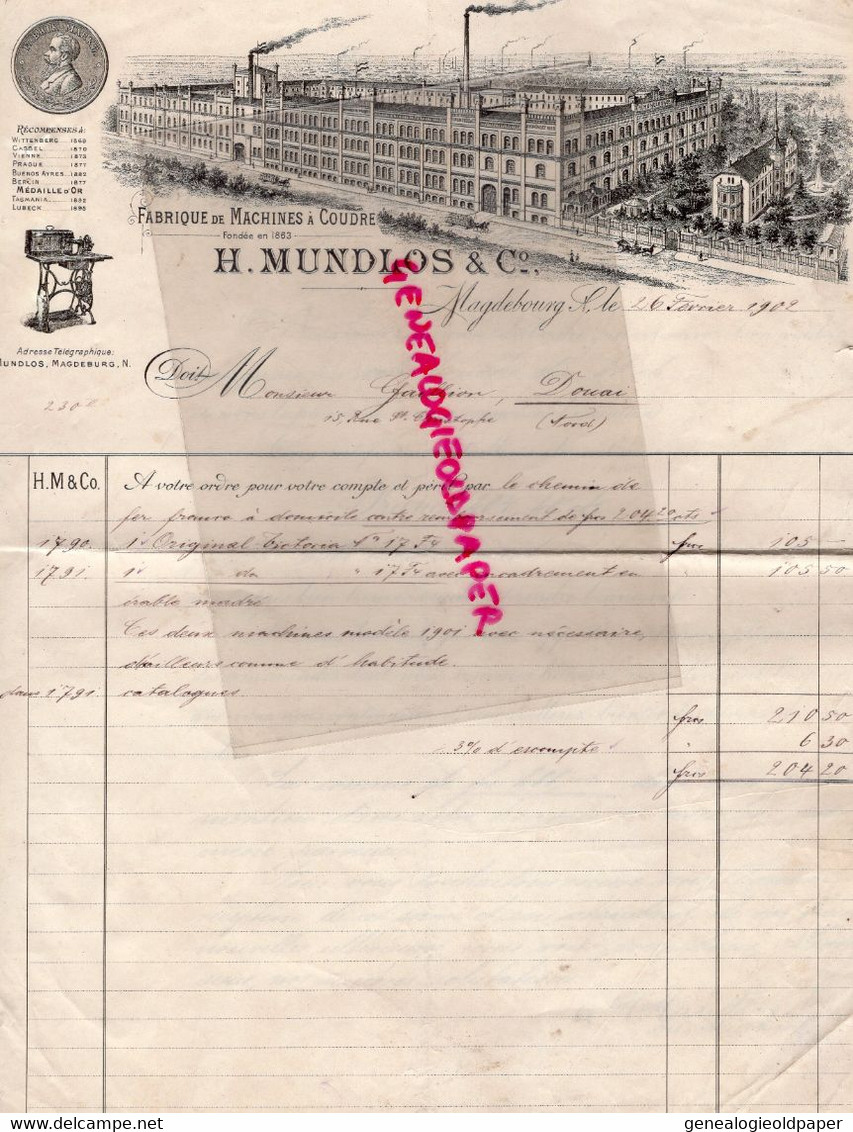 RÉCOMPENSES À:
WITTENBERG 1869
CASSEL 1870
VIENNE 1873
PRAGUE 1877
BUENOS AYRES 1882
BERLIN 1877
MÉDAILLE D'OR
TASMANIA 1892
LUBECK 1895
FABRIQUE DE MACHINES À COUDRE
Fondée en 1863
H. MUNDLOS & Co.,
Magdebourg N. le 26 Février 1902
Adresse Télégraphique:
MUNDLOS, MAGDEBURG, N.
Doit Monsieur Douai
15, Rue St. Christophe (Nord)
230
H.M & Co. A votre ordre pour votre compte et péril par le chemin de
fer franco à domicile contre remboursement de frs 204,20 cts
1790. 1 Original Victoria No 17 F4 frs 105 —
1791. 1 do " 17 F4 avec encadrement en " 105 50
érable madré
Ces deux machines modèle 1901 avec nécessaire,
d'ailleurs comme d'habitude.
dans 1791. catalogues.
frs 210 50
3% d'escompte " 6 30
frs 204 20
GENEALOGIEOLDPAPER
delcampe.net
genealogieoldpaper